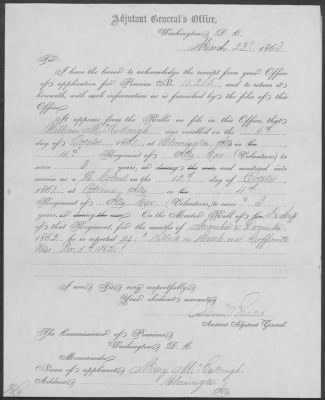 Adjutant General's Office,
Washington D. C.
March 23d 1863
Sir:
I have the honor to acknowledge the receipt from your Office
of application for Pension No. and to return it
herewith, with such information as is furnished by the files of this
Office.
It appears from the Rolls on file in this Office, that
William McCullough was enrolled on the
day of October 1861 at Bloomington, Ills in
4th Regiment of Ills Cav. (Volunteers) to
serve 3 years, or during the war, and mustered into
service as a Lt. Colonel on the day of October
1861, at Ottawa, Ills in 4th
Regiment of Ills Cav. (Volunteers) to serve 3
years, or during the war. On the Muster Roll of
that Regiment, for the months of November & December
1862, he is reported Killed in Battle near Coffeeville
Miss. Dec. 5th 1862
I am, Sir, very respectfully,
Your obedient servant,
Assistant Adjutant General.
The Commissioner of Pensions,
Washington D. C.
Memoranda:
Name of applicant, Mary McCullough
Address, Bloomington